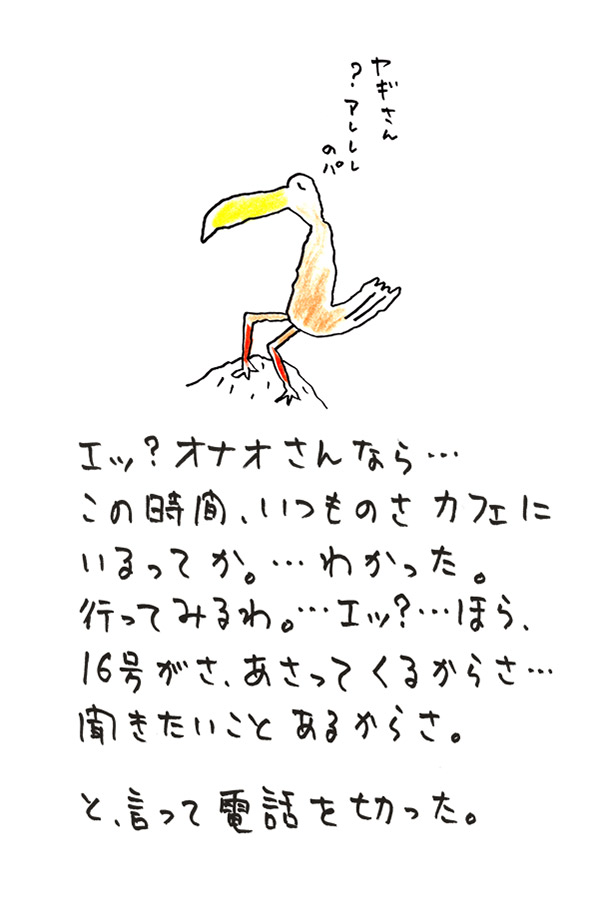 ヤギさん
?アレレレ
のパ
エッ?オナオさんなら…
この時間、いつものさ カフェに
いるってか。…わかった。
行ってみるわ。…エッ?…ほら、
16号がさ、あさってくるからさ…
聞きたいこと あるからさ。
と、言って電話を切った。